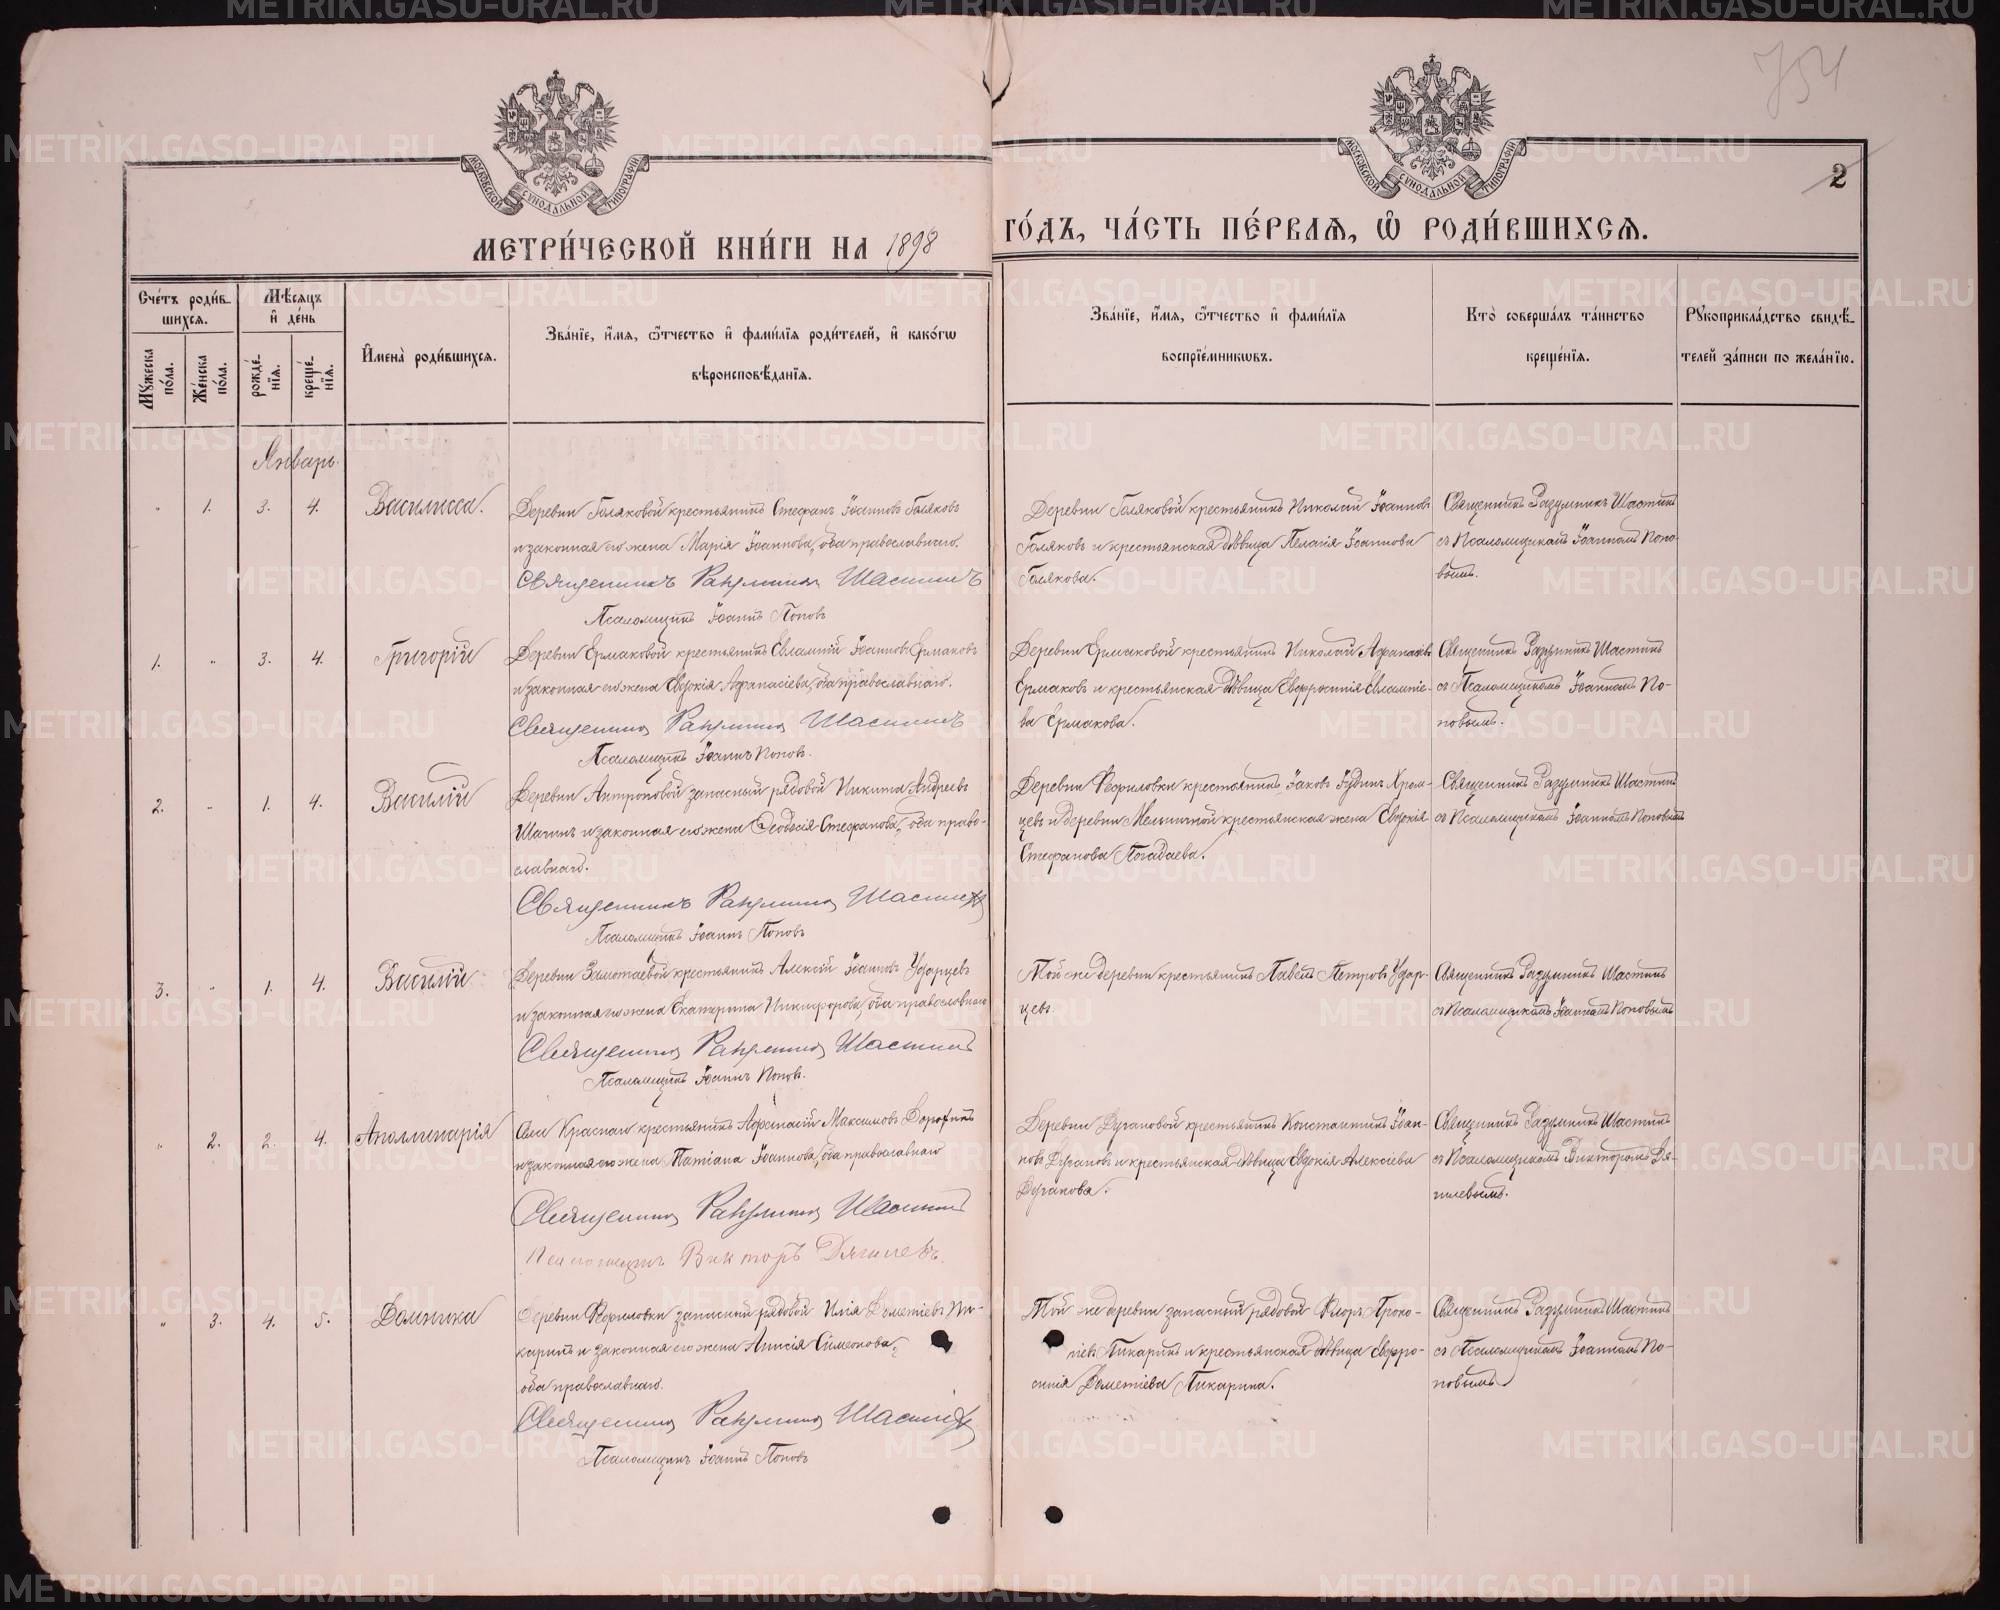 754
МОСКОВСКОЙ СѴНОДАЛЬНОЙ ТИПОГРАФІИ
МОСКОВСКОЙ СѴНОДАЛЬНОЙ ТИПОГРАФІИ
2
МЕТРИ́ЧЕСКОЙ КНИ́ГИ НА 1898 ГО́ДЪ, ЧА́СТЬ ПЕ́РВАѦ, Ѽ РОДИ́ВШИХСѦ.
Сче́тъ роди́в-
шихсѧ.
Мꙋ́жеска по́ла.
Же́нска по́ла.
Мѣ́сѧцъ
и҆ де́нь
рожде́нїѧ.
креще́нїѧ.
И҆мена̀ роди́вшихсѧ.
Зва́нїе, и҆́мѧ, ѻ҆́тчество и҆ фами́лїѧ роди́телей, и҆ како́гѡ
вѣроисповѣ́данїѧ.
Зва́нїе, и҆́мѧ, ѻ҆́тчество и҆ фами́лїѧ
воспрїе́мникѡвъ.
Кто̀ соверша́лъ та́инство
креще́нїѧ.
Рꙋкоприкла́дство свидѣ́-
телей за́писи по жела́нїю.
Январь.
" 1. 3. 4. Василисса.
Деревни Голяковой крестьянинъ Стефанъ Іоанновъ Голяковъ
и законная его жена Марія Іоаннова, оба православнаго.
Священникъ Разумникъ Шастинъ
Псаломщикъ Іоаннъ Поповъ
Деревни Голяковой крестьянинъ Николай Іоанновъ
Голяковъ и крестьянская дѣвица Пелагія Іоаннова
Голякова.
Священникъ Разумникъ Шастинъ
съ Псаломщикомъ Іоанномъ Попо-
вымъ.
1. " 3. 4. Григорій
Деревни Ермаковой крестьянинъ Евлампій Іоанновъ Ермаковъ
и законная его жена Евдокія Афанасіева, оба православнаго.
Священникъ Разумникъ Шастинъ
Псаломщикъ Іоаннъ Поповъ.
Деревни Ермаковой крестьянинъ Николай Афанасьевъ
Ермаковъ и крестьянская дѣвица Евфросинія Евлампіе-
ва Ермакова.
Священникъ Разумникъ Шастинъ
съ Псаломщикомъ Іоанномъ По-
повымъ.
2. " 1. 4. Василій
Деревни Антроповой запасный рядовой Никита Андреевъ
Шагинъ и законная его жена Ѳеодосія Стефанова, оба право-
славнаго.
Священникъ Разумникъ Шастинъ
Псаломщикъ Іоаннъ Поповъ
Деревни Феофиловки крестьянинъ Іаковъ Іудинъ Хром-
цевъ и деревни Мельничной крестьянская жена Евдокія
Стефанова Погадаева.
Священникъ Разумникъ Шастинъ
съ Псаломщикомъ Іоанномъ Поповымъ
3. " 1. 4. Василій
Деревни Замотаевой крестьянинъ Алексій Іоанновъ Ударцевъ
и законная его жена Екатерина Никифорова, оба православнаго
Священникъ Разумникъ Шастинъ
Псаломщикъ Іоаннъ Поповъ.
Той же деревни крестьянинъ Павелъ Петровъ Удар-
цевъ.
Священникъ Разумникъ Шастинъ
съ Псаломщикомъ Іоанномъ Поповымъ
" 2. 2. 4. Аполлинарія
Села Краснаго крестьянинъ Афанасій Максимовъ
и законная его жена Татіана Іоаннова, оба православнаго
Священникъ Разумникъ Шастинъ
Псаломщикъ Викторъ Дягилевъ.
Деревни Дугановой крестьянинъ Константинъ Іоан-
новъ Дугановъ и крестьянская дѣвица Евдокія Алексіева
Дуганова.
Священникъ Разумникъ Шастинъ
съ Псаломщикомъ Викторомъ Дя-
гилевымъ.
" 3. 4. 5. Домника
Деревни Феофиловки запасный рядовой Илія Дометіевъ Пи-
каринъ и законная его жена Анисія Симеонова,
оба православнаго.
Священникъ Разумникъ Шастинъ
Псаломщикъ Іоаннъ Поповъ
Той же деревни запасный рядовой Флоръ Проко-
піевъ Пикаринъ и крестьянская дѣвица Евфро-
синія Дометіева Пикарина.
Священникъ Разумникъ Шастинъ
съ Псаломщикомъ Іоанномъ По-
повымъ
METRIKI.GASO-URAL.RU